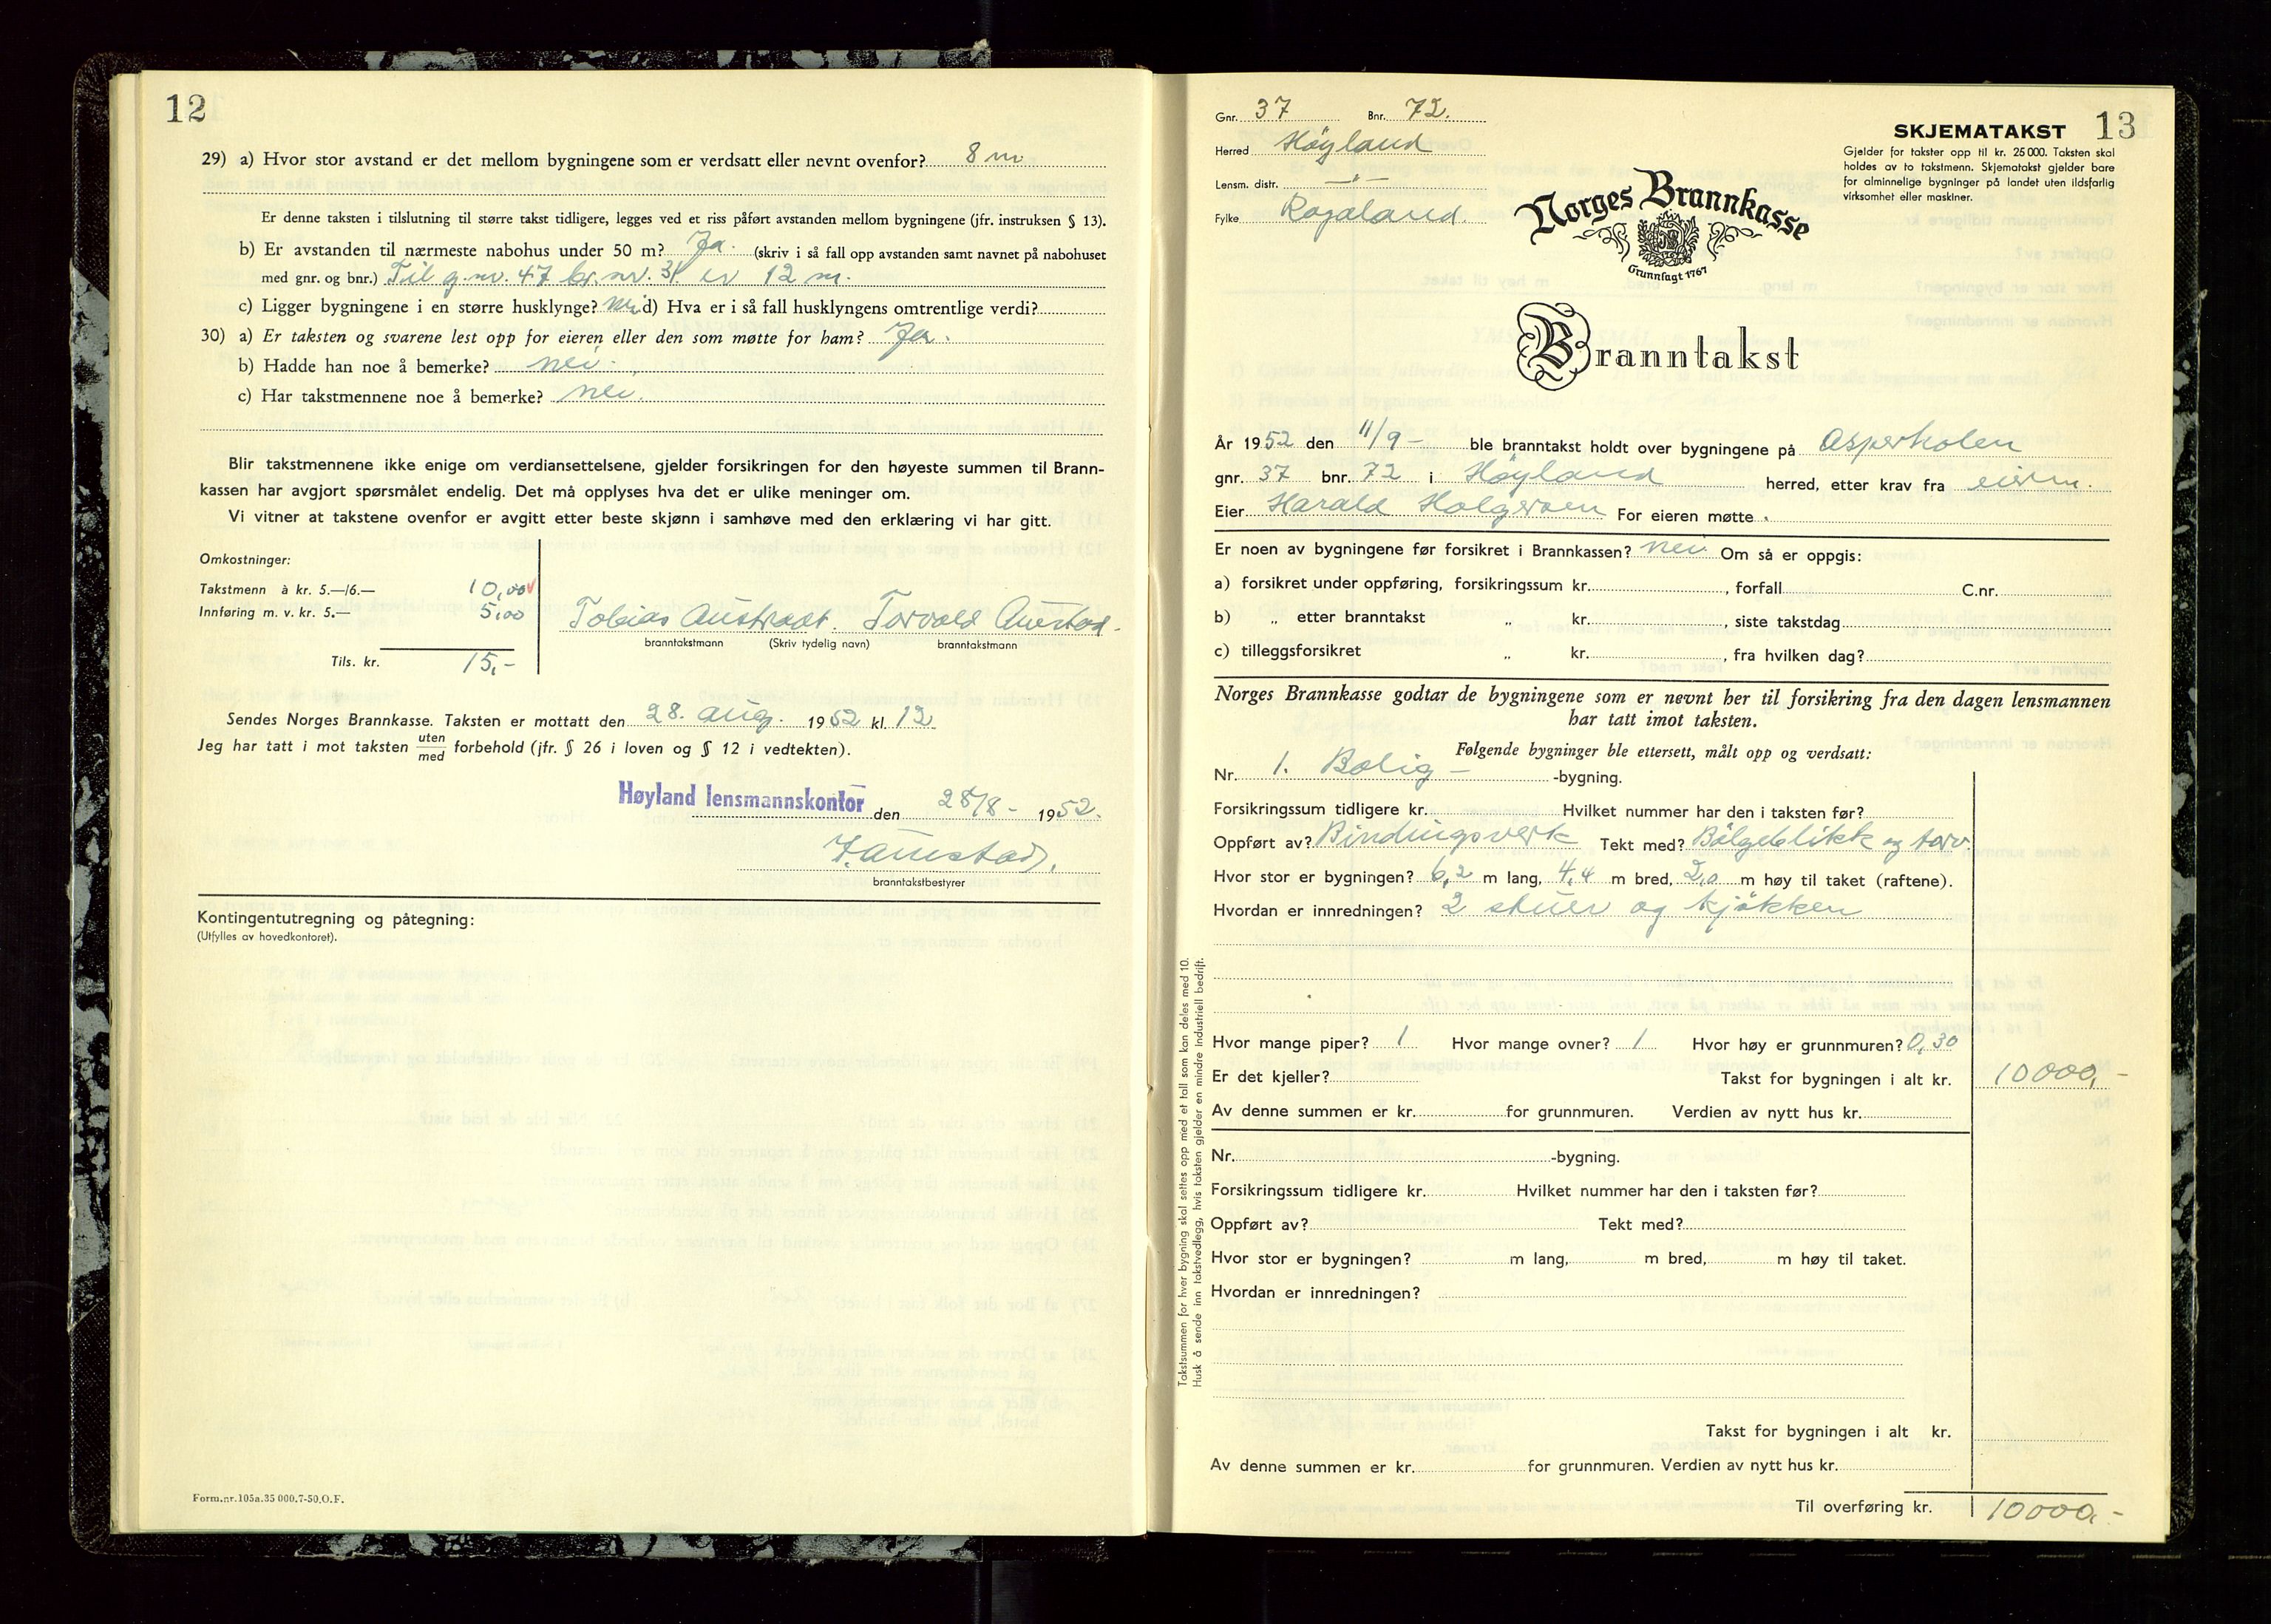 12
29) a) Hvor stor avstand er det mellom bygningene som er verdsatt eller nevnt ovenfor? 8 m
Er denne taksten i tilslutning til større takst tidligere, legges ved et riss påført avstanden mellom bygningene (jfr. instruksen § 13).
b) Er avstanden til nærmeste nabohus under 50 m? Ja. (skriv i så fall opp avstanden samt navnet på nabohuset
med gnr. og bnr.) Til g.nr. 47 br.nr. 31 er 12 m.
c) Ligger bygningene i en større husklynge? nei d) Hva er i så fall husklyngens omtrentlige verdi?
30) a) Er taksten og svarene lest opp for eieren eller den som møtte for ham? Ja.
b) Hadde han noe å bemerke? nei.
c) Har takstmennene noe å bemerke? nei.
Blir takstmennene ikke enige om verdiansettelsene, gjelder forsikringen for den høyeste summen til Brann-
kassen har avgjort spørsmålet endelig. Det må opplyses hva det er ulike meninger om.
Vi vitner at takstene ovenfor er avgitt etter beste skjønn i samhøve med den erklæring vi har gitt.
Omkostninger:
Takstmenn à kr. 5.—/6.— 10,00
Innføring m. v. kr. 5.— 5,00
Tobias Austradt. Torvald Aurstad.
branntakstmann (Skriv tydelig navn) branntakstmann
Tils. kr. 15,-
Sendes Norges Brannkasse. Taksten er mottatt den 28. aug. 1952 kl. 12
Jeg har tatt i mot taksten uten/med forbehold (jfr. § 26 i loven og § 12 i vedtekten).
Høyland lensmannskontor den 28/8 - 1952.
branntakstbestyrer
Kontingentutregning og påtegning:
(Utfylles av hovedkontoret).
Form.nr.105a.35 000.7-50.O.F.
Gnr. 37 Bnr. 72.
SKJEMATAKST 13
Herred Høyland
Gjelder for takster opp til kr. 25 000. Taksten skal
holdes av to takstmenn. Skjematakst gjelder bare
for alminnelige bygninger på landet uten ildsfarlig
virksomhet eller maskiner.
Lensm. distr. —"—
Fylke Rogaland.
Norges Brannkasse
Grunnlagt 1767
Branntakst
År 1952 den 11/9 - ble branntakst holdt over bygningene på Asperholen
gnr. 37 bnr. 72 i Høyland herred, etter krav fra eieren.
Eier Harald Holgersen For eieren møtte
Er noen av bygningene før forsikret i Brannkassen? nei. Om så er oppgis:
a) forsikret under oppføring, forsikringssum kr. , forfall C.nr.
b) „ etter branntakst „ kr. , siste takstdag
c) tilleggsforsikret „ kr. , fra hvilken dag?
Norges Brannkasse godtar de bygningene som er nevnt her til forsikring fra den dagen lensmannen
har tatt imot taksten.
Følgende bygninger ble ettersett, målt opp og verdsatt:
Nr. 1. Bolig - -bygning.
Forsikringssum tidligere kr. Hvilket nummer har den i taksten før?
Oppført av? Bindingsverk Tekt med? Bölgeblikk og torv.
Hvor stor er bygningen? 6,2 m lang, 4,4 m bred, 2,0 m høy til taket (raftene).
Hvordan er innredningen? 2 stuer og kjökken
Hvor mange piper? 1 Hvor mange ovner? 1 Hvor høy er grunnmuren? 0,30
Er det kjeller? Takst for bygningen i alt kr. 10000,-
Av denne summen er kr. for grunnmuren. Verdien av nytt hus kr.
Nr. -bygning.
Forsikringssum tidligere kr. Hvilket nummer har den i taksten før?
Oppført av? Tekt med?
Hvor stor er bygningen? m lang, m bred, m høy til taket.
Hvordan er innredningen?
Takst for bygningen i alt kr.
Av denne summen er kr. for grunnmuren. Verdien av nytt hus kr.
Til overføring kr. 10000,-
Takstsummen for hver bygning skal settes opp med et tall som kan deles med 10.
Husk å sende inn takstvedlegg, hvis taksten gjelder en mindre industriell bedrift.